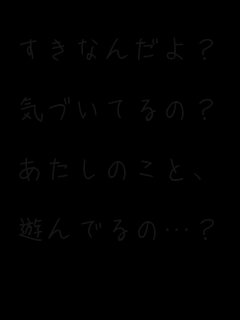 すきなんだよ？
気づいてるの？
あたしのこと、
遊んでるの…？